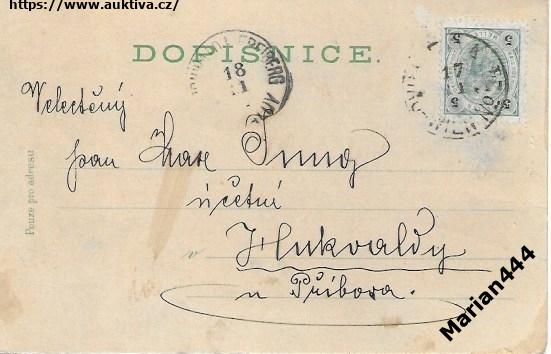 https://www.auktiva.cz/
DOPISNICE.
FREIBERG
18
17
5 5
5 5
Velectěný
pan
účetní
v Hukvaldy
u Příbora.
Pouze pro adresu
Marian444